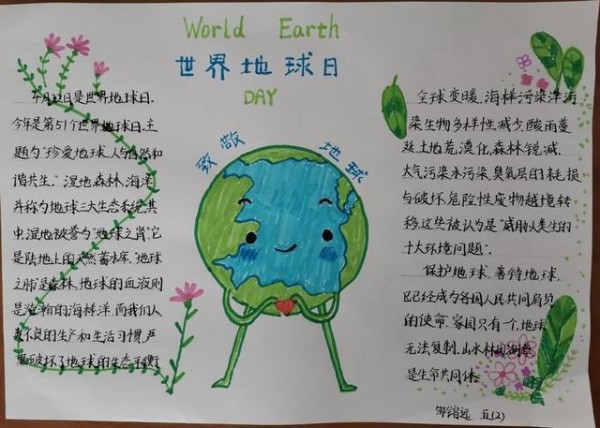 World Earth
世界地球日
DAY
致敬 地球
4月22日是世界地球日。
今年是第51个世界地球日。主
题为"珍爱地球,人与自然和
谐共生。"湿地森林、海洋
并称为地球三大生态系统,其
中,湿地被誉为"地球之肾",它
是陆地上的天然蓄水库。地球
之肺是森林,地球的血液则
是浩瀚的海洋,而我们人
类不良的生产和生活习惯,严
重破坏了地球的生态平衡
全球变暖、海洋污染
染生物多样性减少、酸雨蔓
延土地荒漠化、森林锐减、
大气污染水污染、臭氧层的耗损
与破坏、危险性废物越境转
移,这些被认为是"威胁人类生的
十大环境问题"。
保护地球、善待地球,
已经成为各国人民共同肩负
的使命。家园只有一个,地球
无法复制。山水林田湖草
是生命共同体。
五(2)